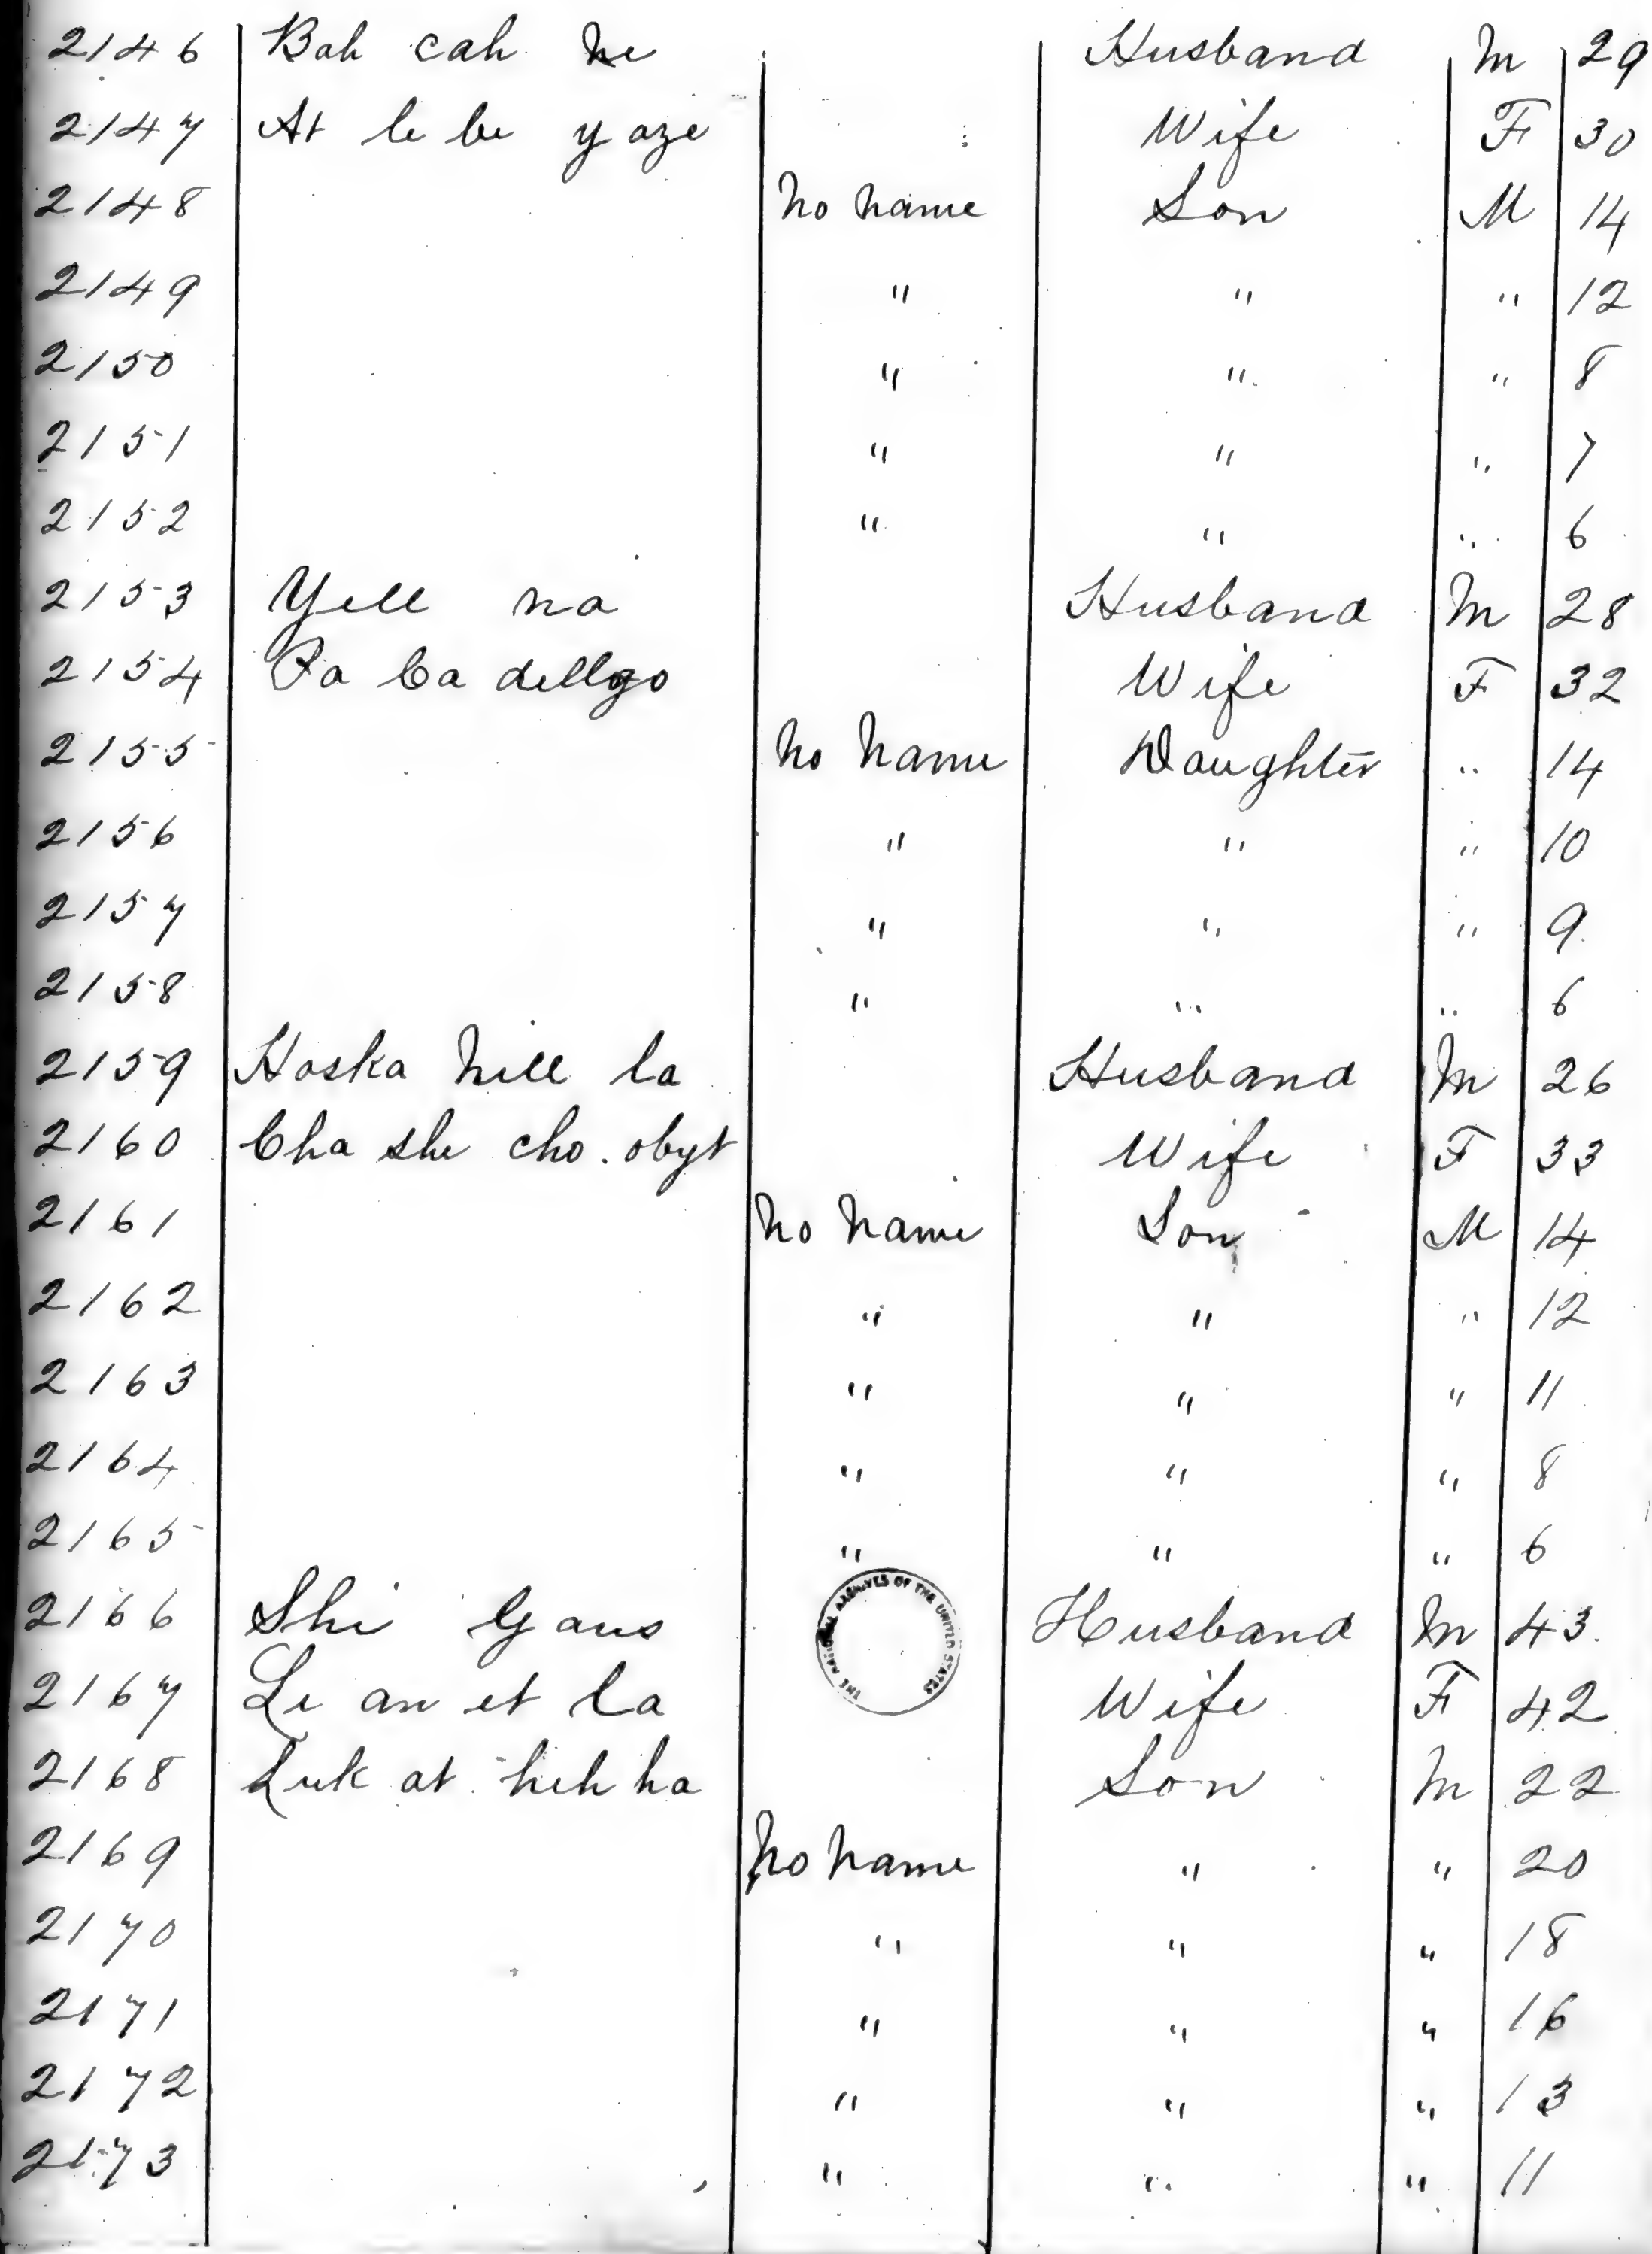 2146 Bah cah he Husband M 29
2147 At le be yaze Wife F 30
2148 No Name Son M 14
2149 " " " 12
2150 " " " 8
2151 " " " 7
2152 " " " 6
2153 Yell na Husband M 28
2154 Pa Ca dellgo Wife F 32
2155 No Name Daughter " 14
2156 " " " 10
2157 " " " 9
2158 " " " 6
2159 Haska Nill la Husband M 26
2160 Cha she cho. obyt Wife F 33
2161 No Name Son M 14
2162 " " " 12
2163 " " " 11
2164 " " " 8
2165 " " " 6
THE NATIONAL ARCHIVES OF THE UNITED STATES
2166 Shi Gaus Husband M 43
2167 Le an et La Wife F 42
2168 Luk at heh ha Son M 22
2169 No Name " " 20
2170 " " " 18
2171 " " " 16
2172 " " " 13
2173 " " " 11